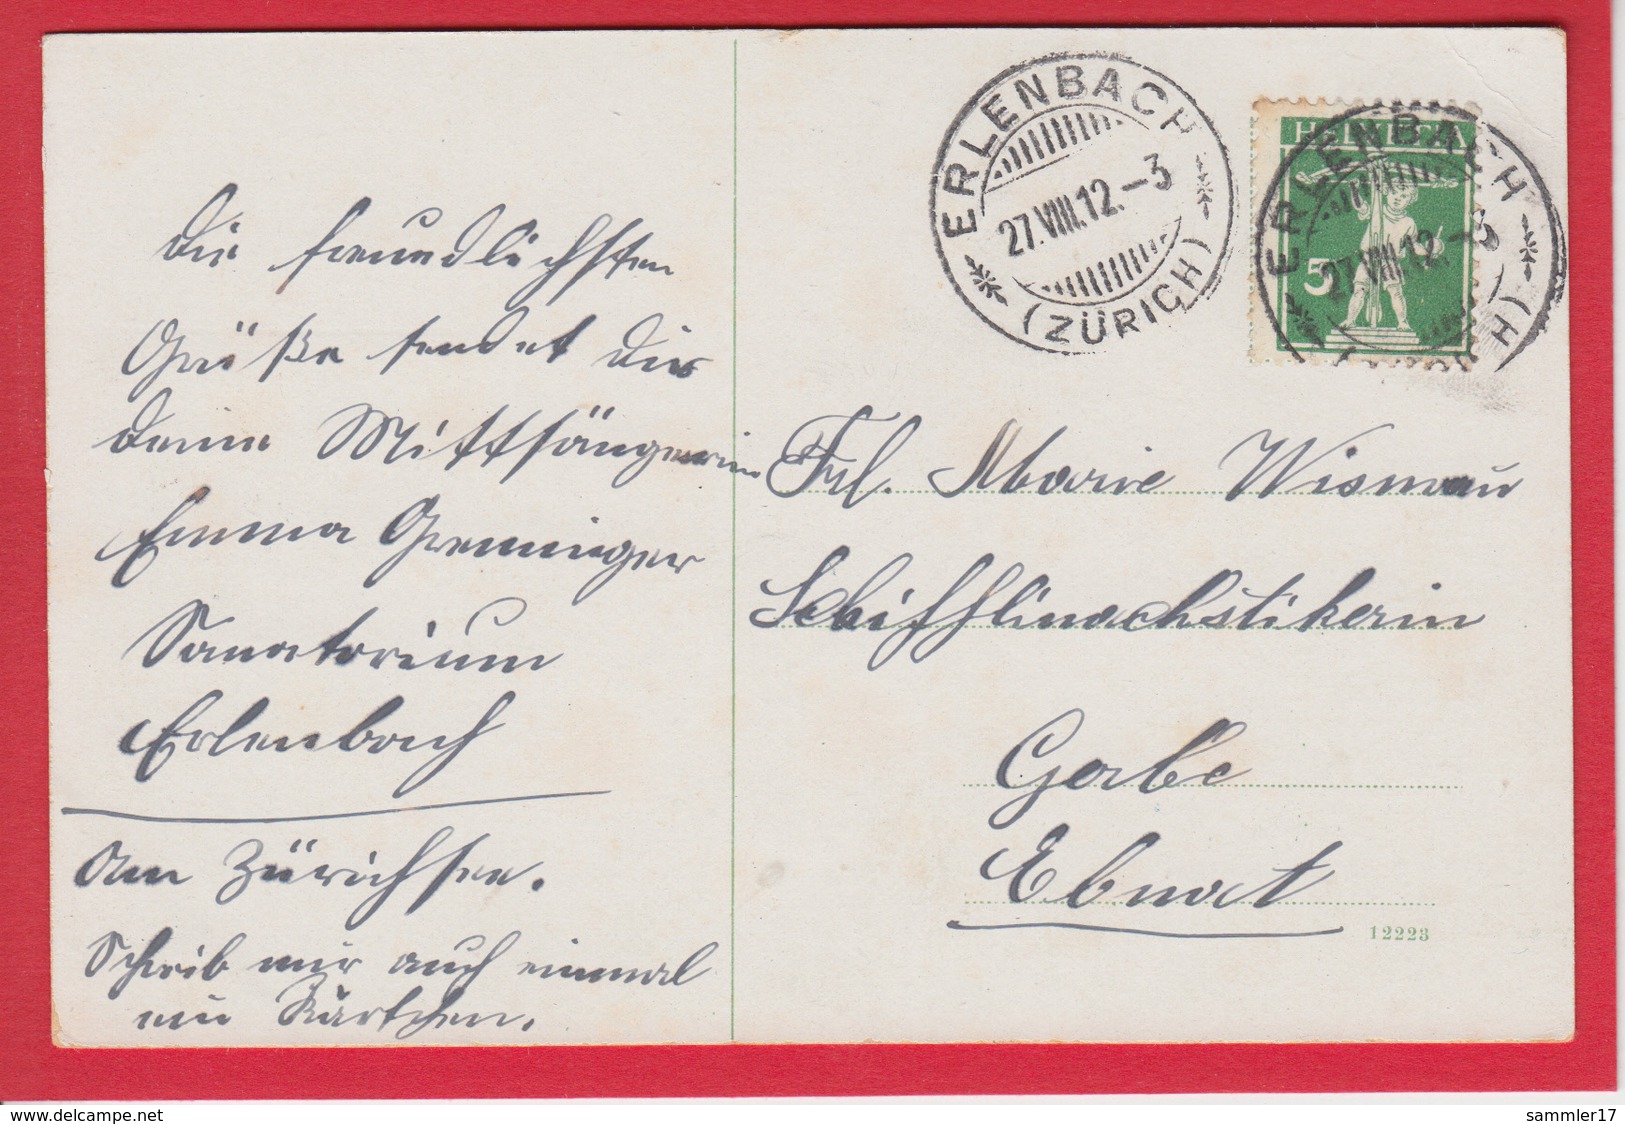 Die freundlichsten
Grüße sendet Dir
deine Mittsängerin
Emma Grenninger
Sanatorium
Erlenbach
am Zürichsee.
Schreib mir auch einmal
ein Kärtchen.
ERLENBACH
27.VIII.12.-3
(ZÜRICH)
HELVETIA
5
ERLENBACH
27.VIII.12.-3
Frl. Marie Wismau
Schifflinachstikerin
Gerbe
Ebnat
12223
delcampe.net
sammler17